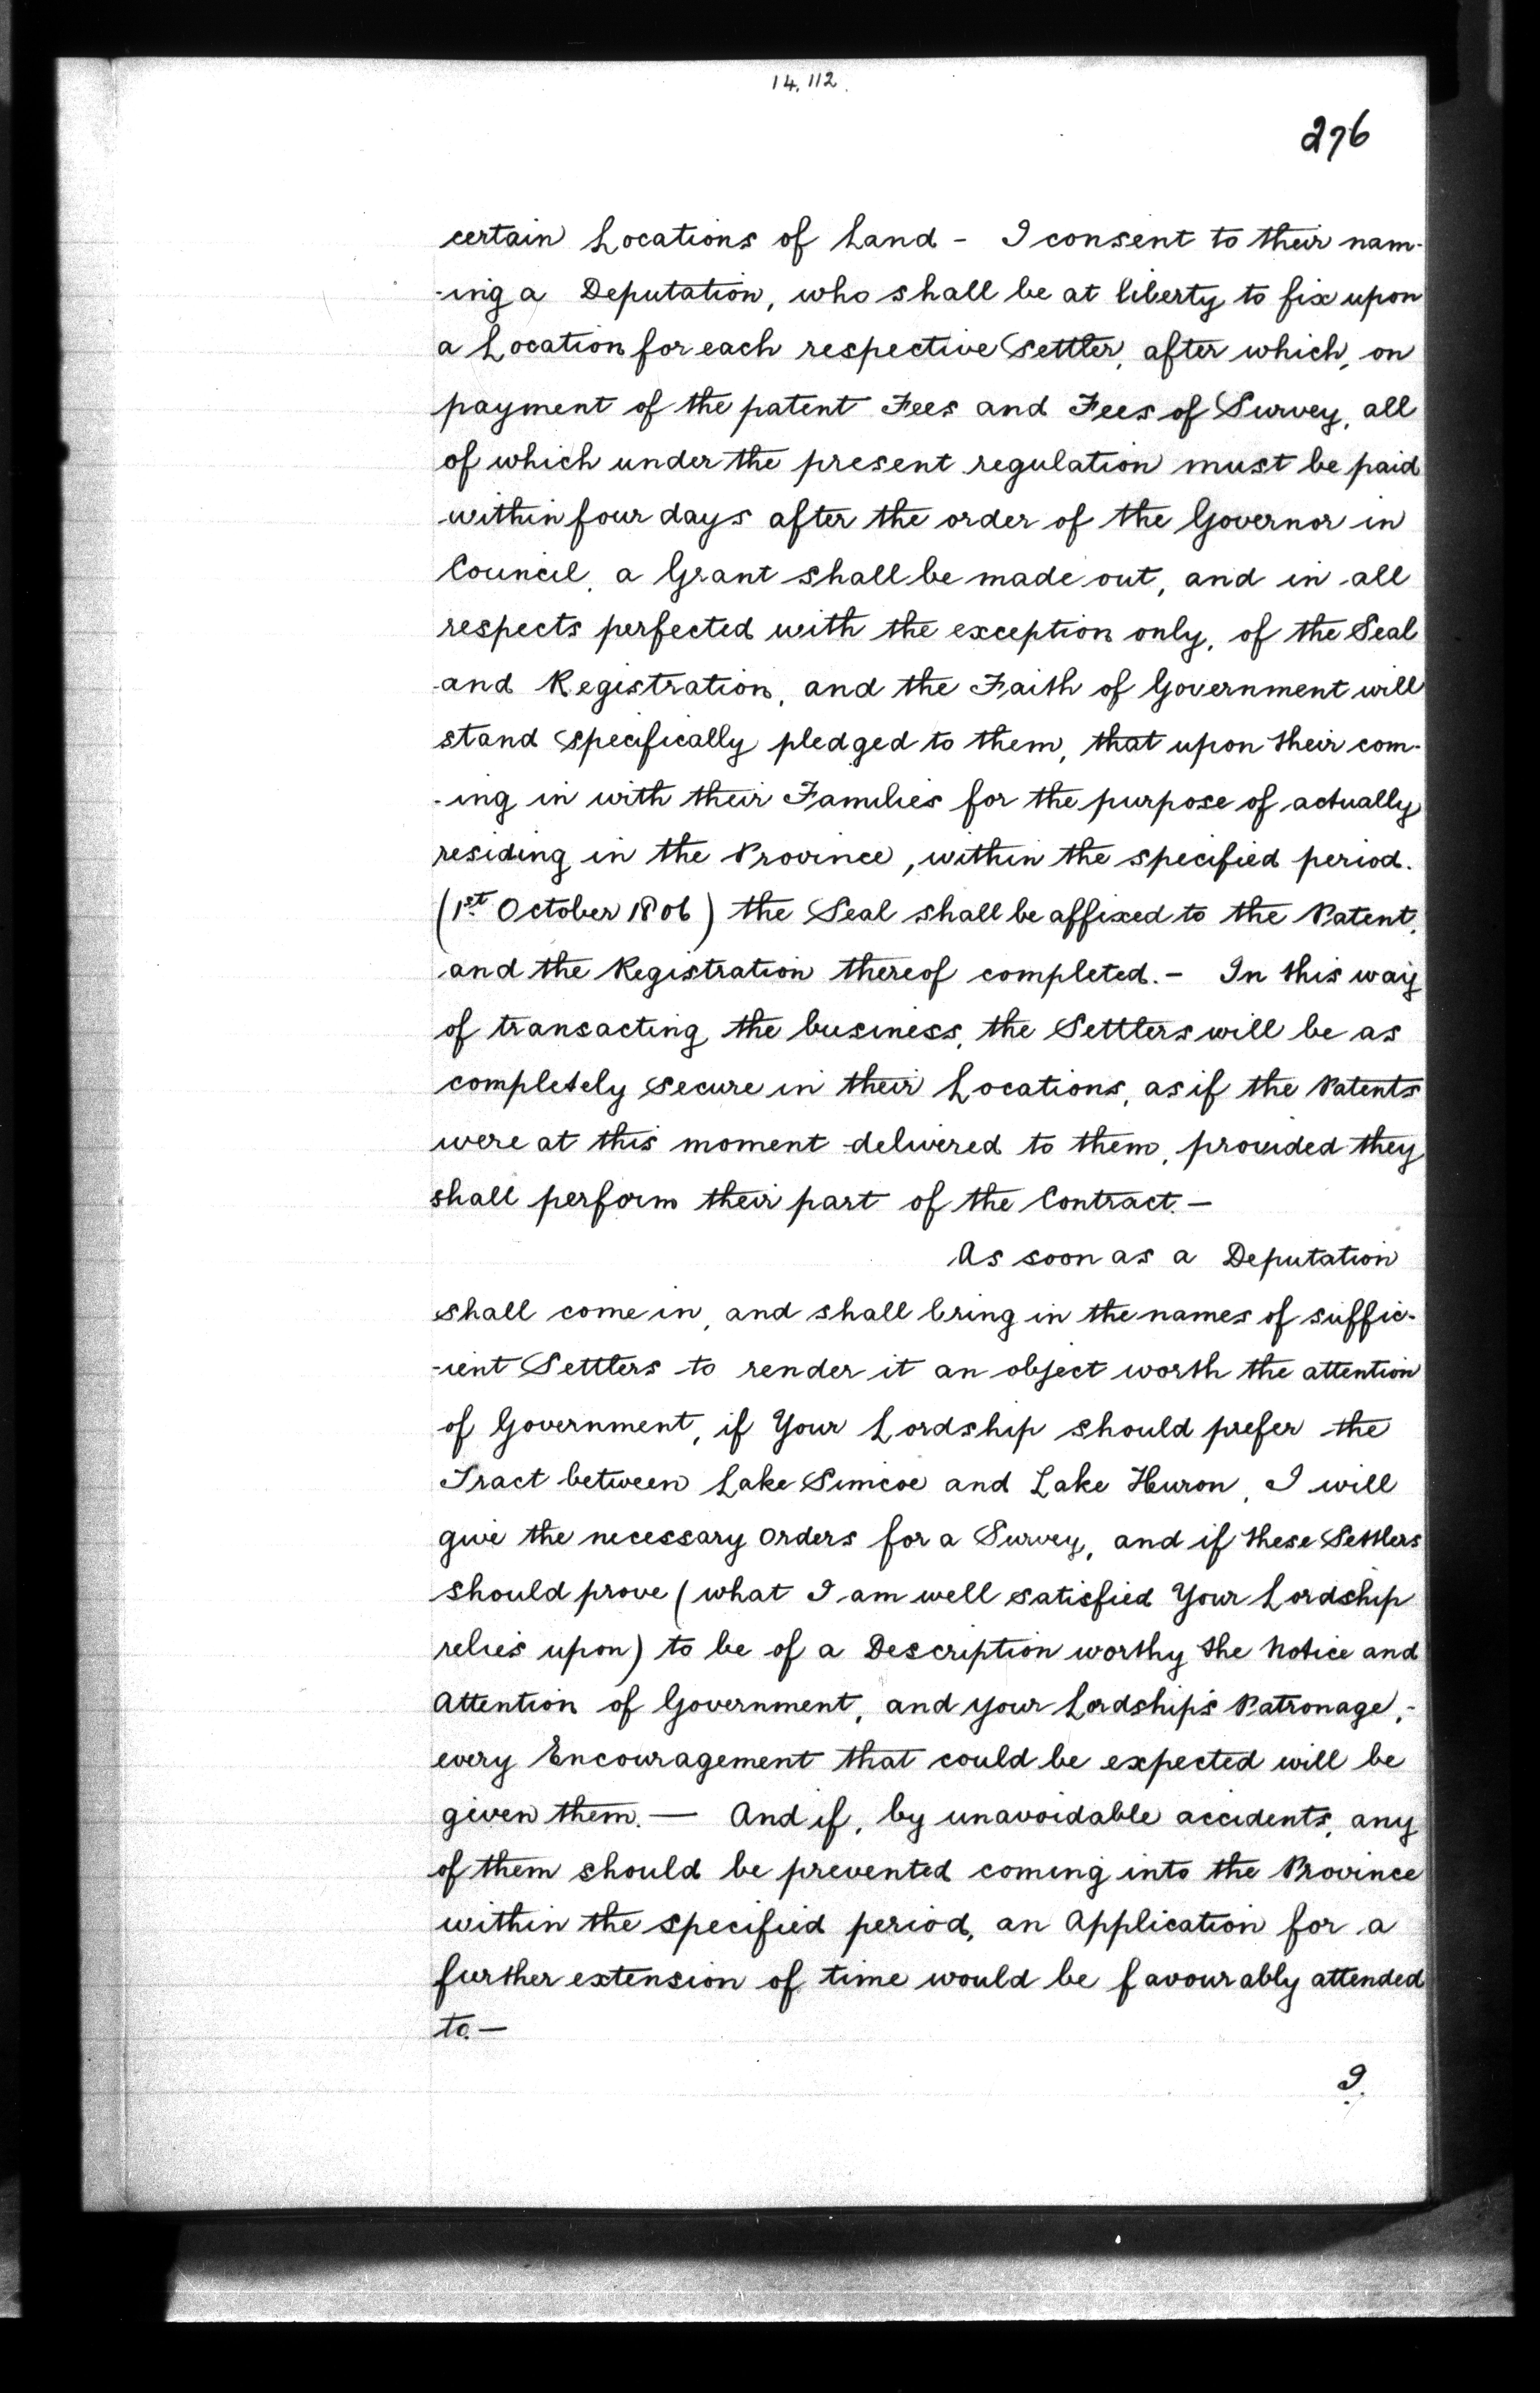 14,112.
276
certain Locations of Land - I consent to their nam-
-ing a Deputation, who shall be at liberty to fix upon
a Location for each respective Settler, after which, on
payment of the patent Fees and Fees of Survey, all
of which under the present regulation must be paid
within four days after the order of the Governor in
Council, a Grant shall be made out, and in all
respects perfected with the exception only, of the Seal
and Registration, and the Faith of Government will
stand specifically pledged to them, that upon their com-
-ing in with their Families for the purpose of actually
residing in the Province, within the specified period.
(1st October 1806) the Seal shall be affixed to the Patent,
and the Registration thereof completed. - In this way
of transacting the business, the Settlers will be as
completely secure in their Locations, as if the Patents
were at this moment delivered to them, provided they
shall perform their part of the Contract. -
As soon as a Deputation
shall come in, and shall bring in the names of suffic-
-ient Settlers to render it an object worth the attention
of Government, if Your Lordship should prefer the
Tract between Lake Simcoe and Lake Huron, I will
give the necessary Orders for a Survey, and if these Settlers
should prove (what I am well satisfied Your Lordship
relies upon) to be of a Description worthy the Notice and
Attention of Government, and your Lordship's Patronage, -
every Encouragement that could be expected will be
given them. — And if, by unavoidable accidents, any
of them should be prevented coming into the Province
within the specified period, an Application for a
further extension of time would be favourably attended
to. -
I.